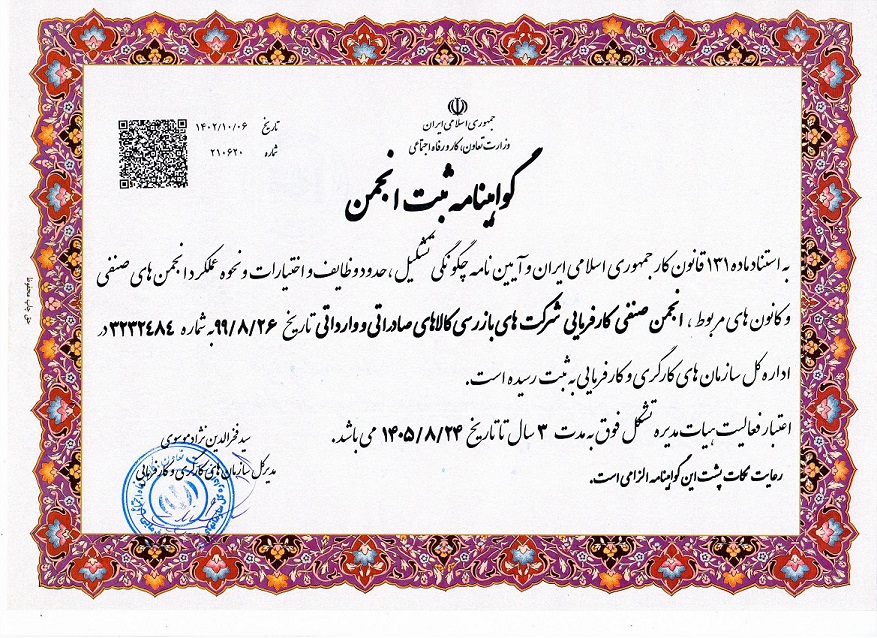 جمهوری اسلامی ایران
وزارت تعاون، کار و رفاه اجتماعی
تاریخ ۱۴۰۲/۱۰/۰۶
شماره ۲۱۰۶۲۰
گواهینامه ثبت انجمن
به استناد ماده ۱۳۱ قانون کار جمهوری اسلامی ایران و آیین نامه چگونگی تشکیل ، حدود وظایف و اختیارات و نحوه عملکرد انجمن های صنفی
و کانون های مربوط ، انجمن صنفی کارفرمایی شرکت های بازرسی کالاهای صادراتی و وارداتی تاریخ ۹۹/۸/۲۶ به شماره ۳۲۳۲۴۸۴ در
اداره کل سازمان های کارگری و کارفرمایی به ثبت رسیده است.
اعتبار فعالیت هیات مدیره تشکل فوق به مدت ۳ سال تا تاریخ ۱۴۰۵/۸/۲۴ می باشد.
رعایت نکات پشت این گواهینامه الزامی است.
سید فخرالدین نژاد موسوی
مدیرکل سازمان های کارگری و کارفرمایی
حق چاپ محفوظ